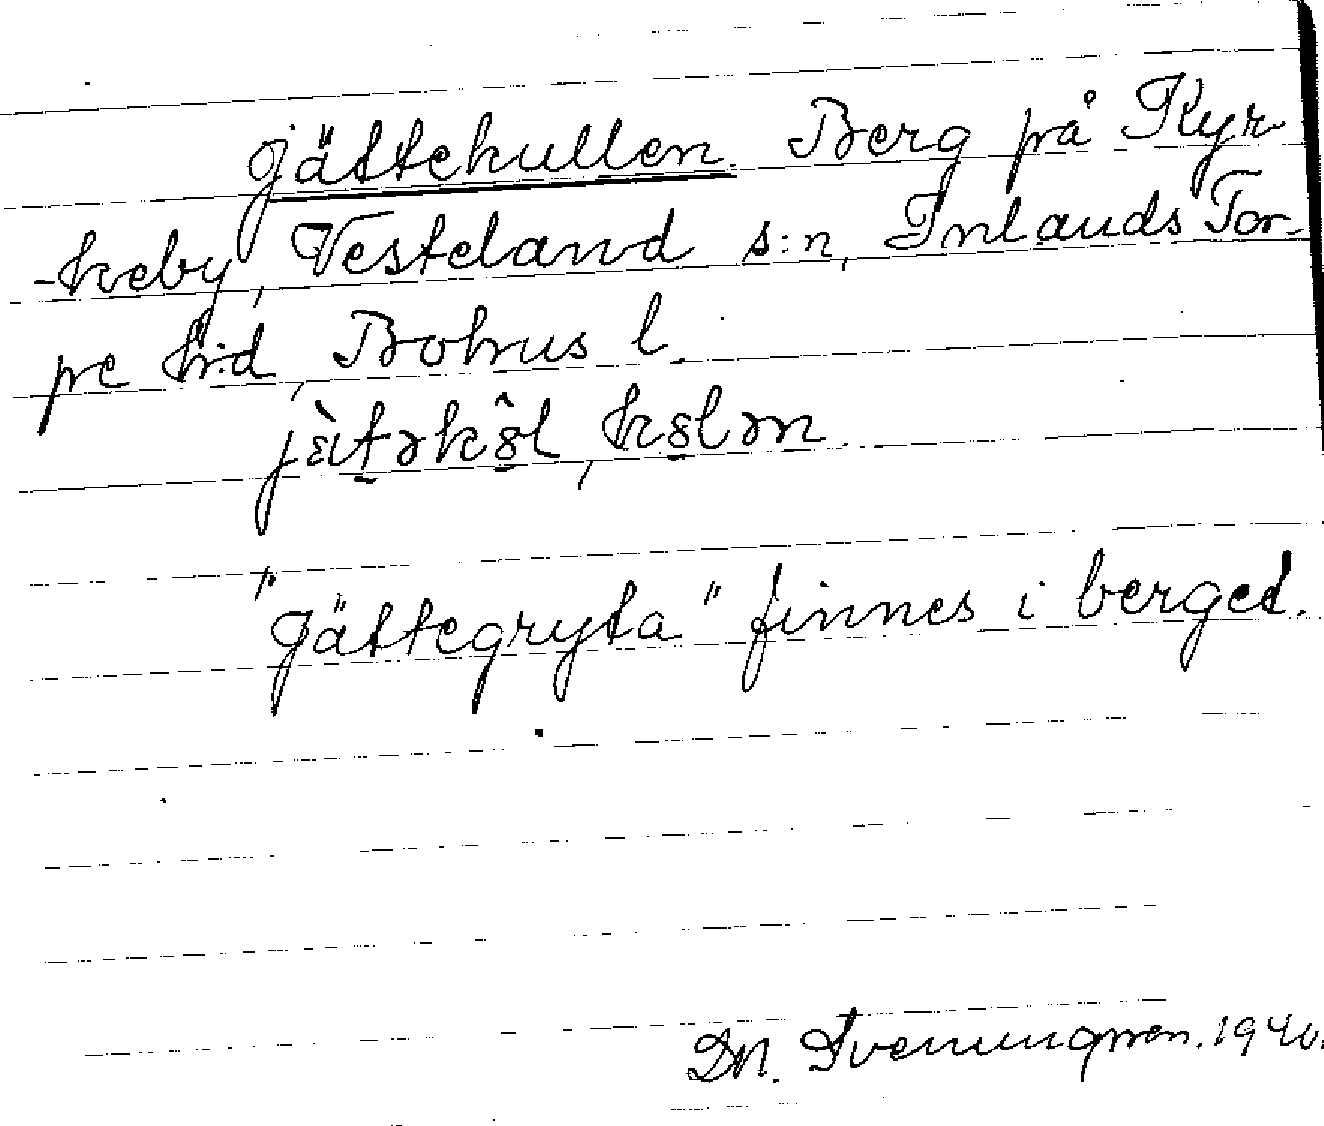 Jättekullen. Berg på Kyr-
-keby, Vesteland s:n, Inlands Tor-
pe h:d, Bohus l.
"Jättegryta" finnes i berget.
D.N. Svenungsson. 1940.